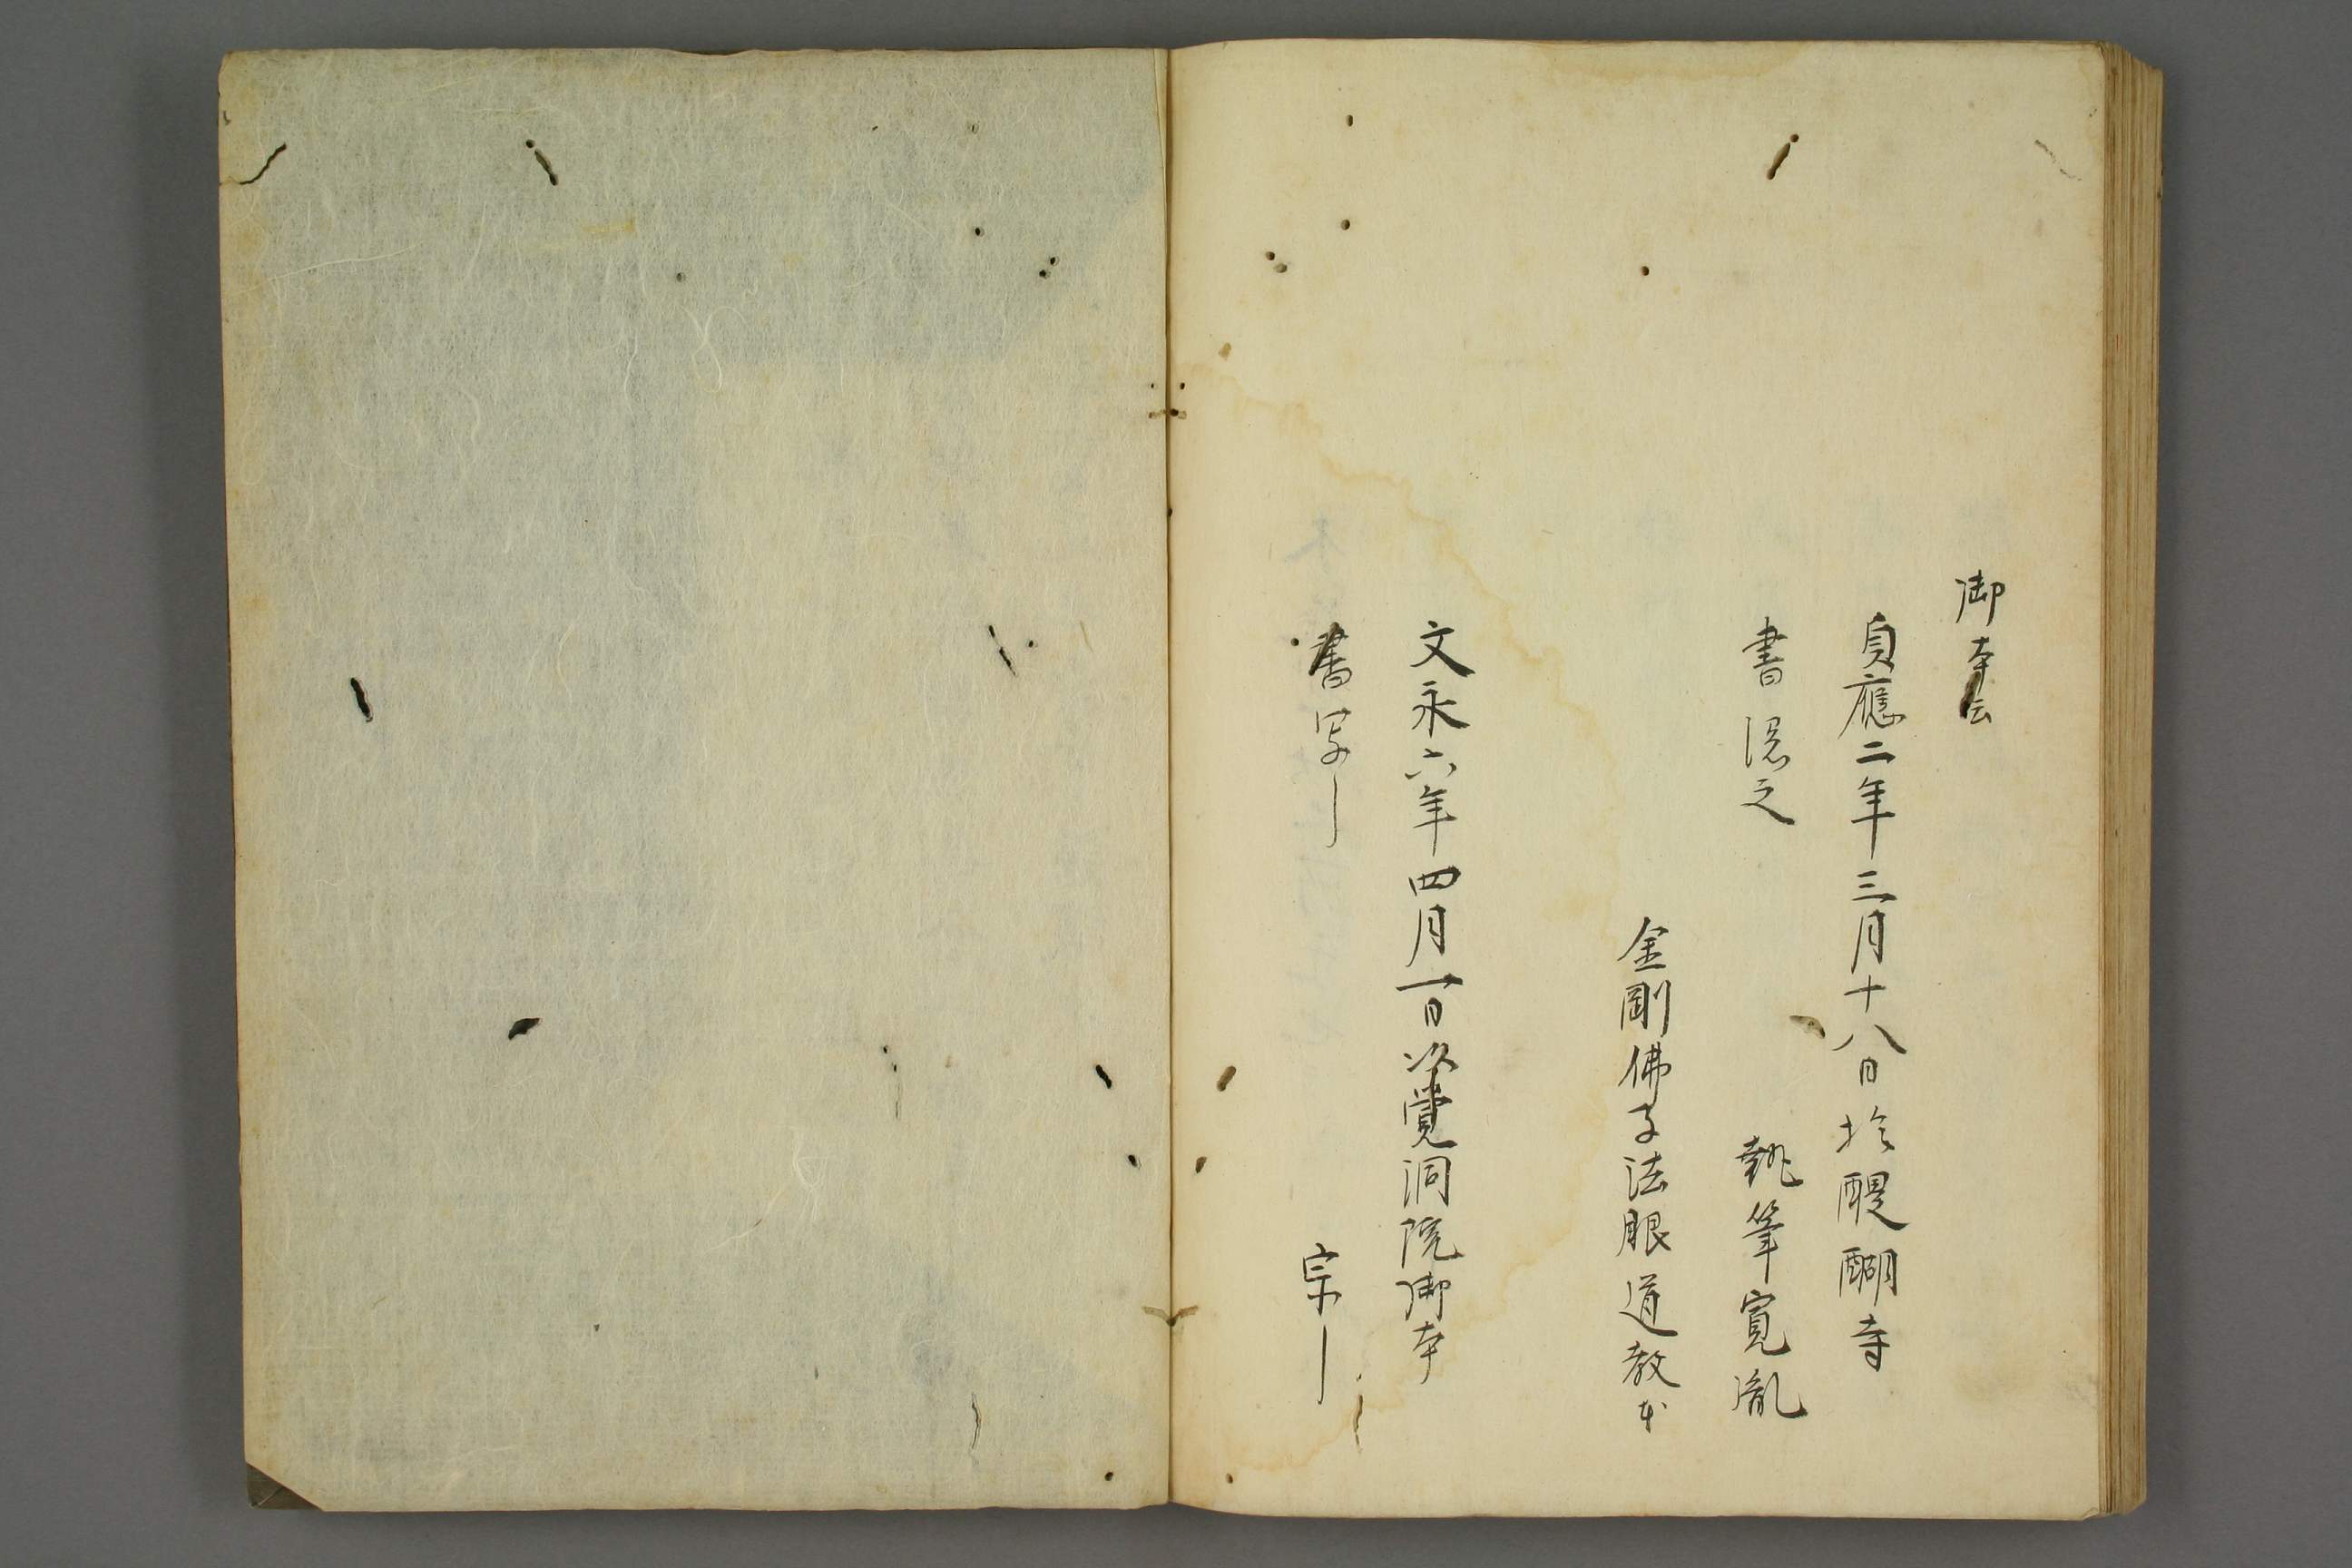 御本云
貞應二年三月十八日於醍醐寺
書逻之 執筆寛胤
金剛佛子法眼道教本
文永六年四月一日以覺洞院御本
書写〡
宗〡